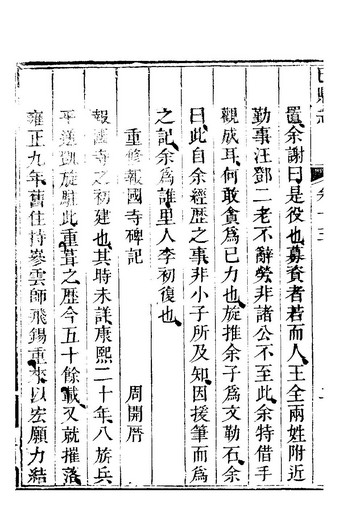 置余謝曰是役也募資者若而人王全兩姓附近
勤事汪鄧二老不辭勞非諸公不至此余特借手
觀成耳何敢貪爲己力也旋推余子爲文勒石余
曰此自余經歷之事非小子所及知因援筆而爲
之記余爲誰里人李初復也
重修報國寺碑記
周開曆
報國寺之初建也其時未詳康熙二十年八旂兵
平遼凱旋駐此重葺之歷今五十餘載又就摧落
雍正九年舊住持參雲師飛錫重來以宏願力結